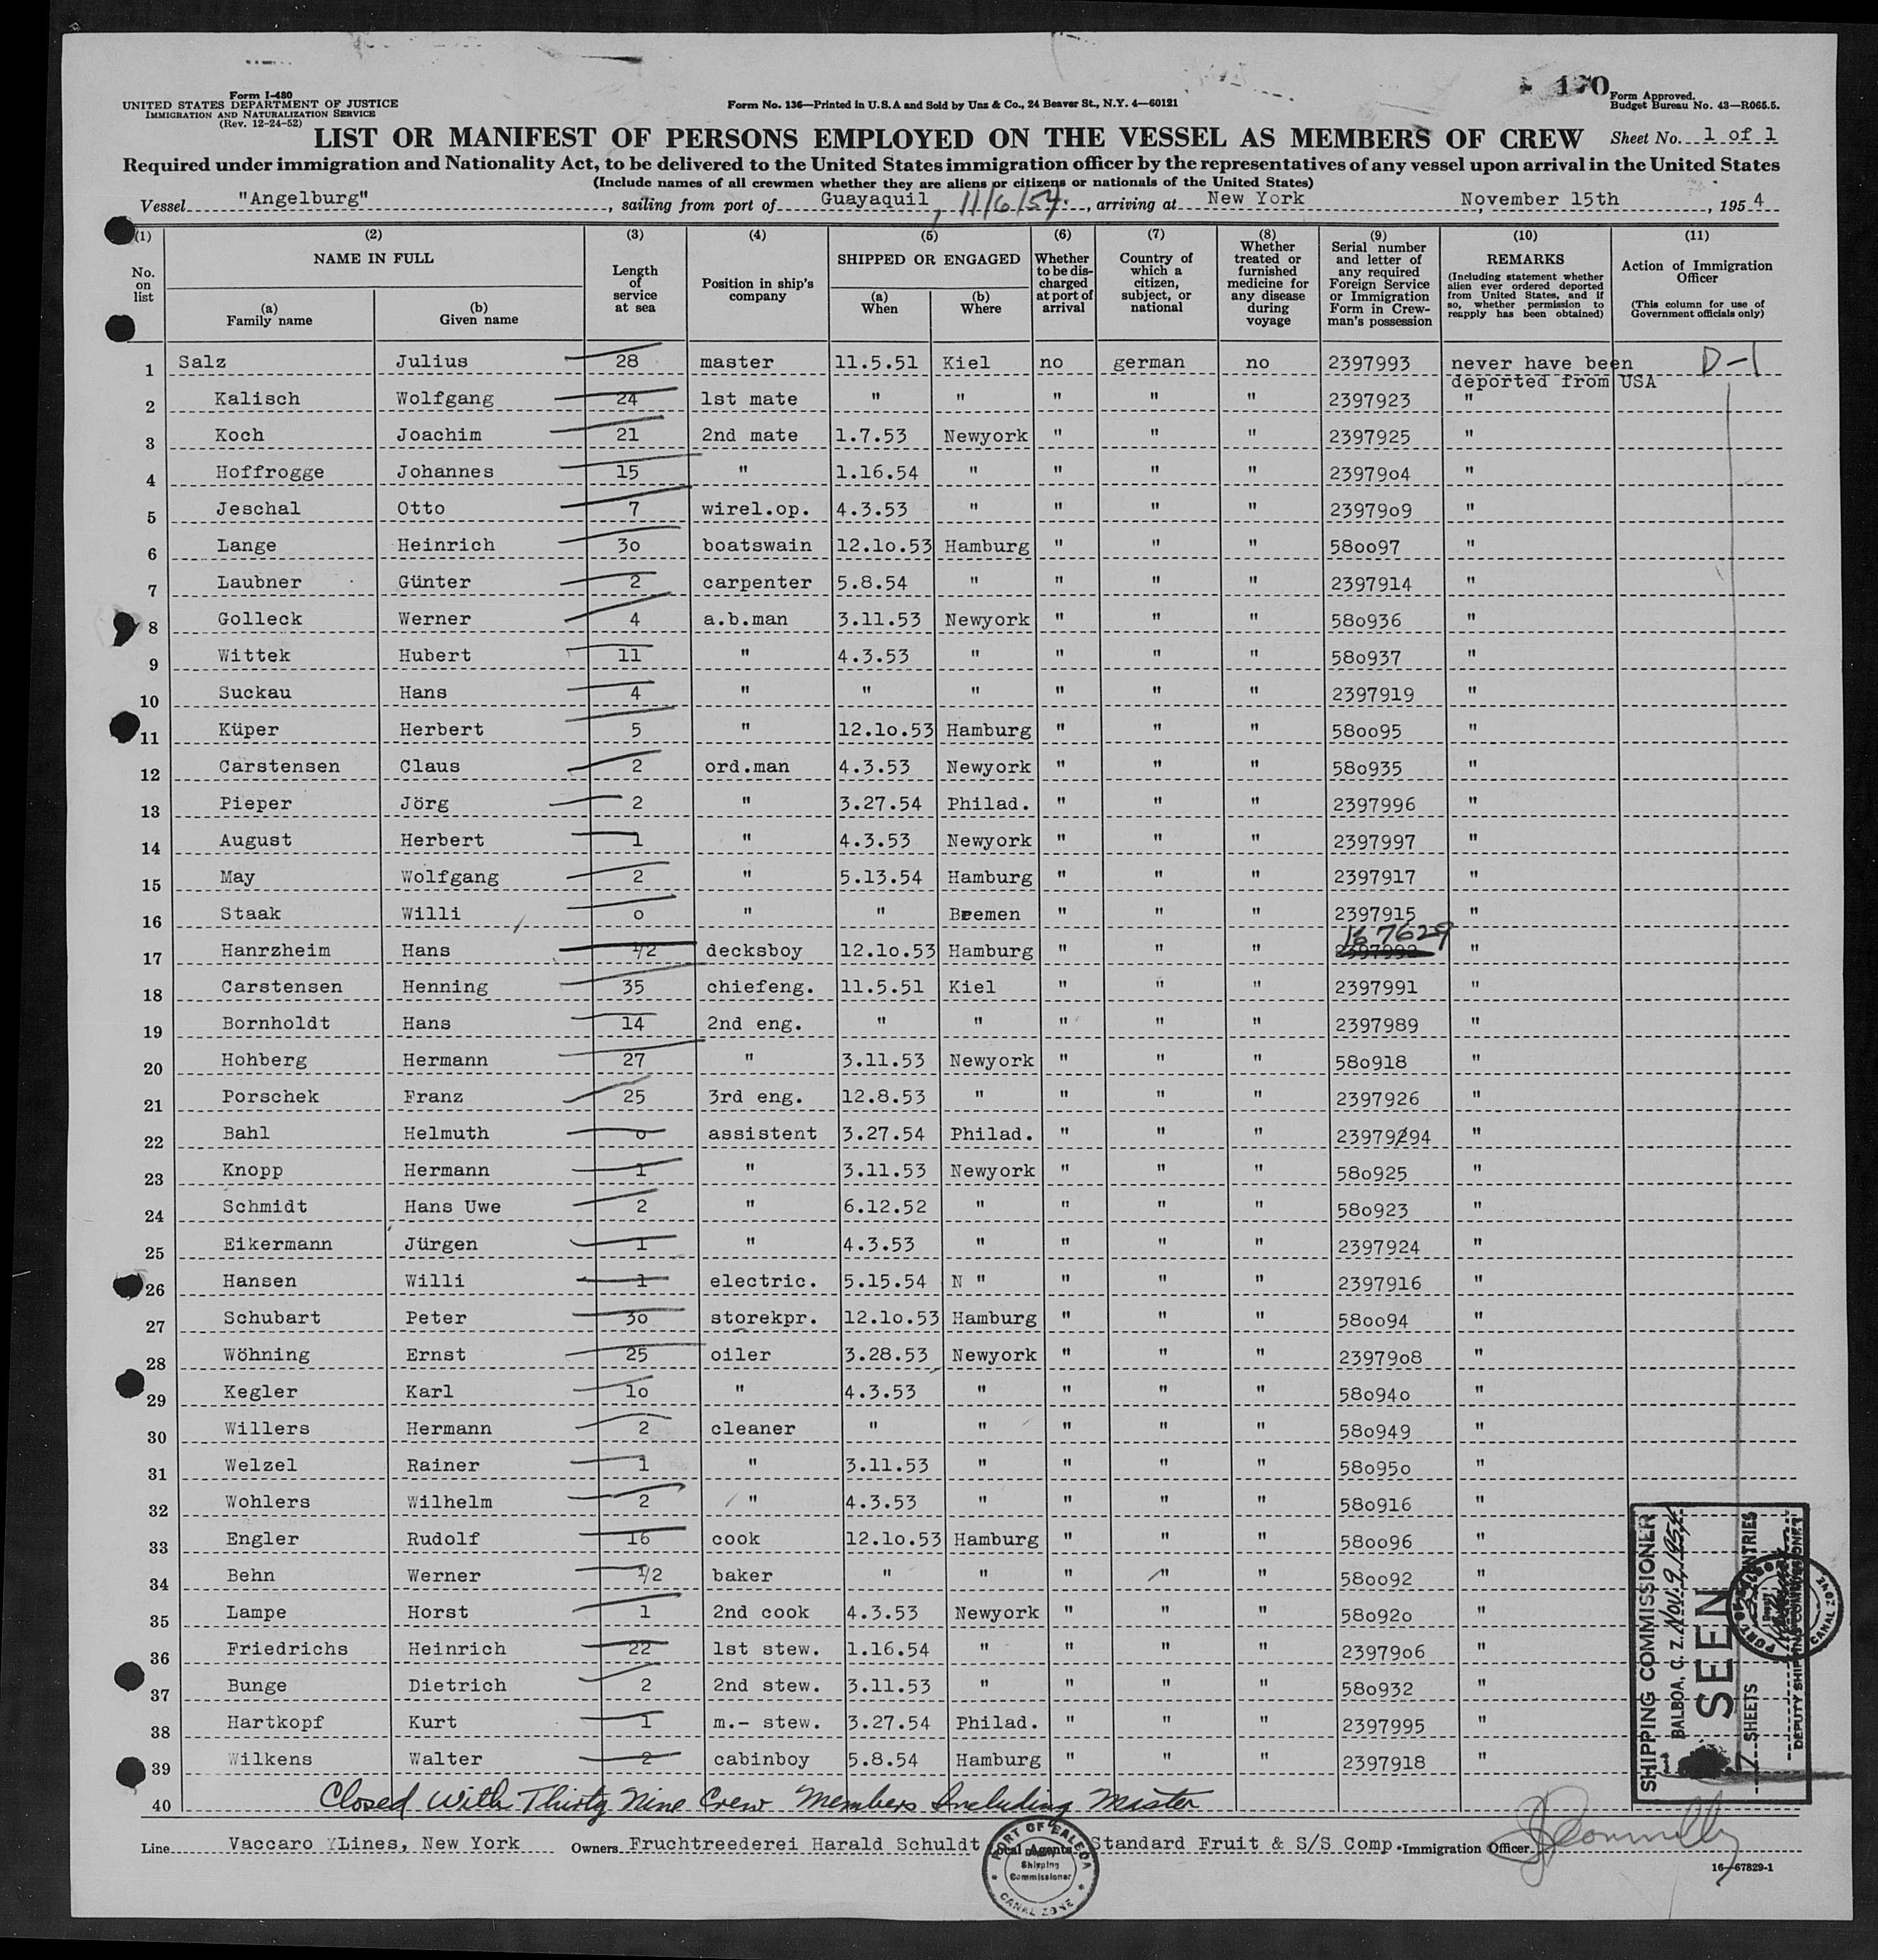 170
Form I-480
UNITED STATES DEPARTMENT OF JUSTICE
IMMIGRATION AND NATURALIZATION SERVICE
(Rev. 12-24-52)
Form No. 136—Printed in U.S.A and Sold by Unz & Co., 24 Beaver St., N.Y. 4—60121
Form Approved.
Budget Bureau No. 43—R065.5.
LIST OR MANIFEST OF PERSONS EMPLOYED ON THE VESSEL AS MEMBERS OF CREW Sheet No. 1 of 1
Required under immigration and Nationality Act, to be delivered to the United States immigration officer by the representatives of any vessel upon arrival in the United States
(Include names of all crewmen whether they are aliens or citizens or nationals of the United States)
Vessel "Angelburg", sailing from port of Guayaquil, 11/6/54., arriving at New York November 15th, 1954
(1) No. on list
(2) NAME IN FULL (a) Family name (b) Given name
(3) Length of service at sea
(4) Position in ship's company
(5) SHIPPED OR ENGAGED (a) When (b) Where
(6) Whether to be discharged at port of arrival
(7) Country of which a citizen, subject, or national
(8) Whether treated or furnished medicine for any disease during voyage
(9) Serial number and letter of any required Foreign Service or Immigration Form in Crewman's possession
(10) REMARKS (Including statement whether alien ever ordered deported from United States, and if so, whether permission to reapply has been obtained)
(11) Action of Immigration Officer (This column for use of Government officials only)
1 Salz Julius 28 master 11.5.51 Kiel no german no 2397993 never have been deported from USA D-1
2 Kalisch Wolfgang 24 1st mate " " " " " 2397923 "
3 Koch Joachim 21 2nd mate 1.7.53 Newyork " " " 2397925 "
4 Hoffrogge Johannes 15 " 1.16.54 " " " " 23979o4 "
5 Jeschal Otto 7 wirel.op. 4.3.53 " " " " 23979o9 "
6 Lange Heinrich 3o boatswain 12.1o.53 Hamburg " " " 58oo97 "
7 Laubner Günter 2 carpenter 5.8.54 " " " " 2397914 "
8 Golleck Werner 4 a.b.man 3.11.53 Newyork " " " 58o936 "
9 Wittek Hubert 11 " 4.3.53 " " " " 58o937 "
10 Suckau Hans 4 " " " " " " 2397919 "
11 Küper Herbert 5 " 12.1o.53 Hamburg " " " 58oo95 "
12 Carstensen Claus 2 ord.man 4.3.53 Newyork " " " 58o935 "
13 Pieper Jörg 2 " 3.27.54 Philad. " " " 2397996 "
14 August Herbert 1 " 4.3.53 Newyork " " " 2397997 "
15 May Wolfgang 2 " 5.13.54 Hamburg " " " 2397917 "
16 Staak Willi o " " Bremen " " " 2397915 "
17 Hanrzheim Hans 1/2 decksboy 12.1o.53 Hamburg " " " 167629 "
18 Carstensen Henning 35 chiefeng. 11.5.51 Kiel " " " 2397991 "
19 Bornholdt Hans 14 2nd eng. " " " " " 2397989 "
20 Hohberg Hermann 27 " 3.11.53 Newyork " " " 58o918 "
21 Porschek Franz 25 3rd eng. 12.8.53 " " " " 2397926 "
22 Bahl Helmuth o assistent 3.27.54 Philad. " " " 23979294 "
23 Knopp Hermann 1 " 3.11.53 Newyork " " " 58o925 "
24 Schmidt Hans Uwe 2 " 6.12.52 " " " " 58o923 "
25 Eikermann Jürgen 1 " 4.3.53 " " " " 2397924 "
26 Hansen Willi 1 electric. 5.15.54 N " " " " 2397916 "
27 Schubart Peter 3o storekpr. 12.1o.53 Hamburg " " " 58oo94 "
28 Wöhning Ernst 25 oiler 3.28.53 Newyork " " " 23979o8 "
29 Kegler Karl 1o " 4.3.53 " " " " 58o94o "
30 Willers Hermann 2 cleaner " " " " " 58o949 "
31 Welzel Rainer 1 " 3.11.53 " " " " 58o95o "
32 Wohlers Wilhelm 2 " 4.3.53 " " " " 58o916 "
33 Engler Rudolf 16 cook 12.1o.53 Hamburg " " " 58oo96 "
34 Behn Werner 1/2 baker " " " " " 58oo92 "
35 Lampe Horst 1 2nd cook 4.3.53 Newyork " " " 58o92o "
36 Friedrichs Heinrich 22 1st stew. 1.16.54 " " " " 23979o6 "
37 Bunge Dietrich 2 2nd stew. 3.11.53 " " " " 58o932 "
38 Hartkopf Kurt 1 m.- stew. 3.27.54 Philad. " " " 2397995 "
39 Wilkens Walter 2 cabinboy 5.8.54 Hamburg " " " 2397918 "
40 Closed With Thirty Nine Crew Members Including Master
SHIPPING COMMISSIONER
BALBOA, C. Z. Nov. 9, 1954
SEEN
SHEETS
DEPUTY SHIPPING COMMISSIONER
CANAL ZONE
Line Vaccaro Lines, New York Owners Fruchtreederei Harald Schuldt Local Agents Standard Fruit & S/S Comp. Immigration Officer
PORT OF BALBOA
Shipping Commissioner
CANAL ZONE
16—67829-1